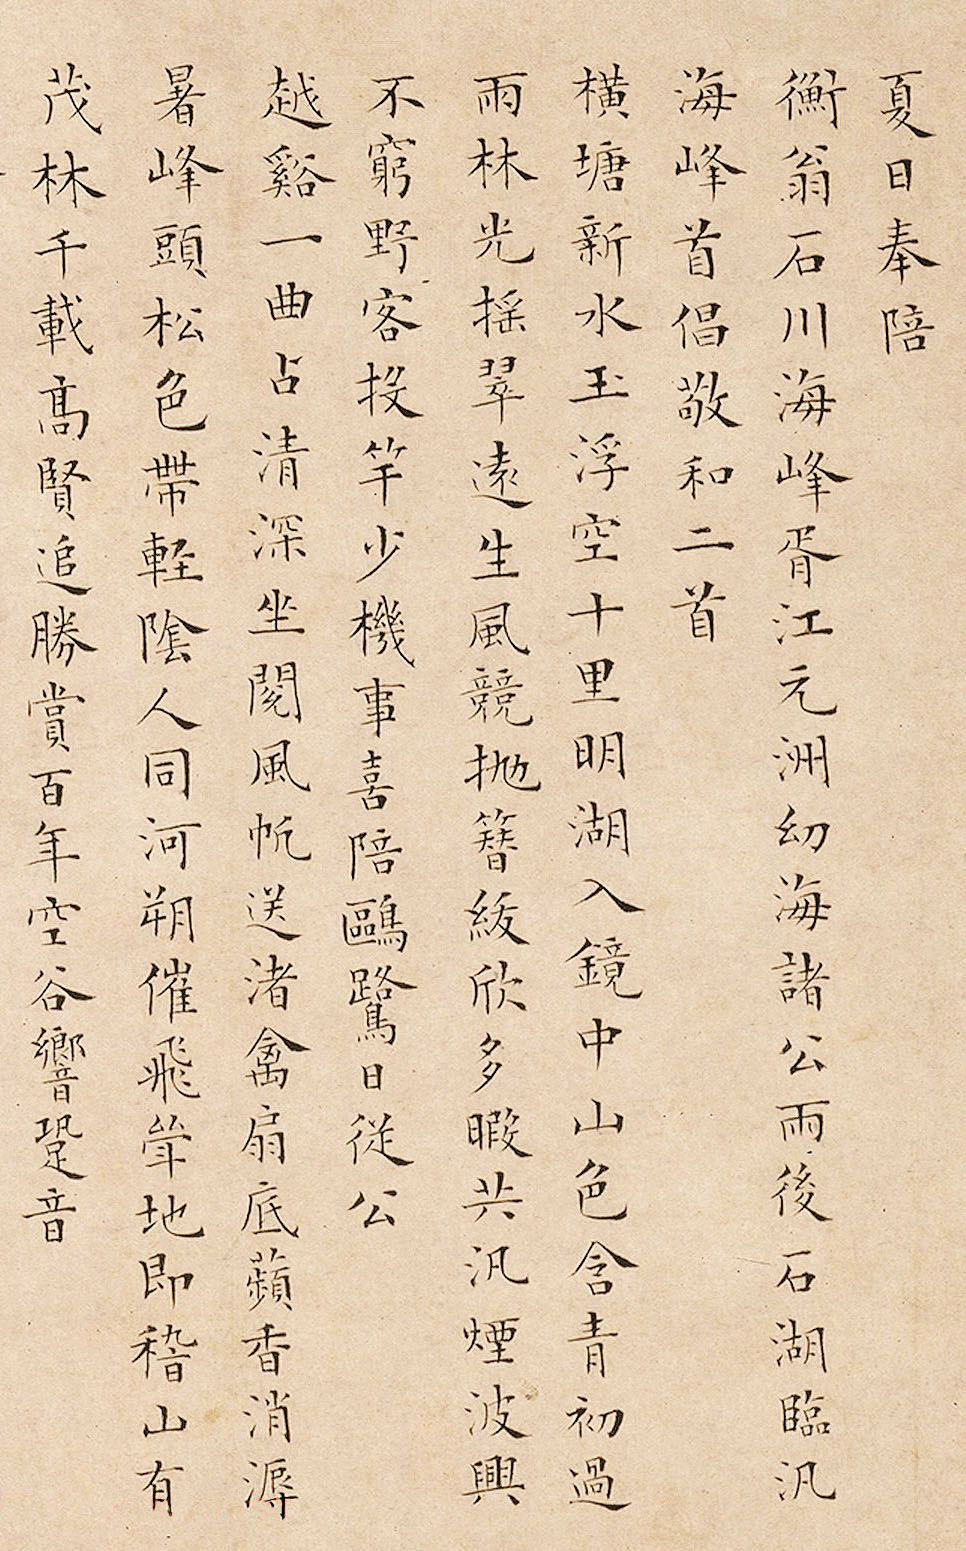 夏日奉陪
衡翁石川海峰胥江元洲幼海諸公雨後石湖臨汎
海峰首倡敬和二首
橫塘新水玉浮空十里明湖入鏡中山色含青初過
雨林光搖翠遠生風競拋簪紱欣多暇共汎煙波興
不窮野客投竿少機事喜陪鷗鷺日從公
越谿一曲占清深坐閱風帆送渚禽扇底蘋香消溽
暑峰頭松色帶輕陰人同河朔催飛斝地即稽山有
茂林千載高賢追勝賞百年空谷響跫音